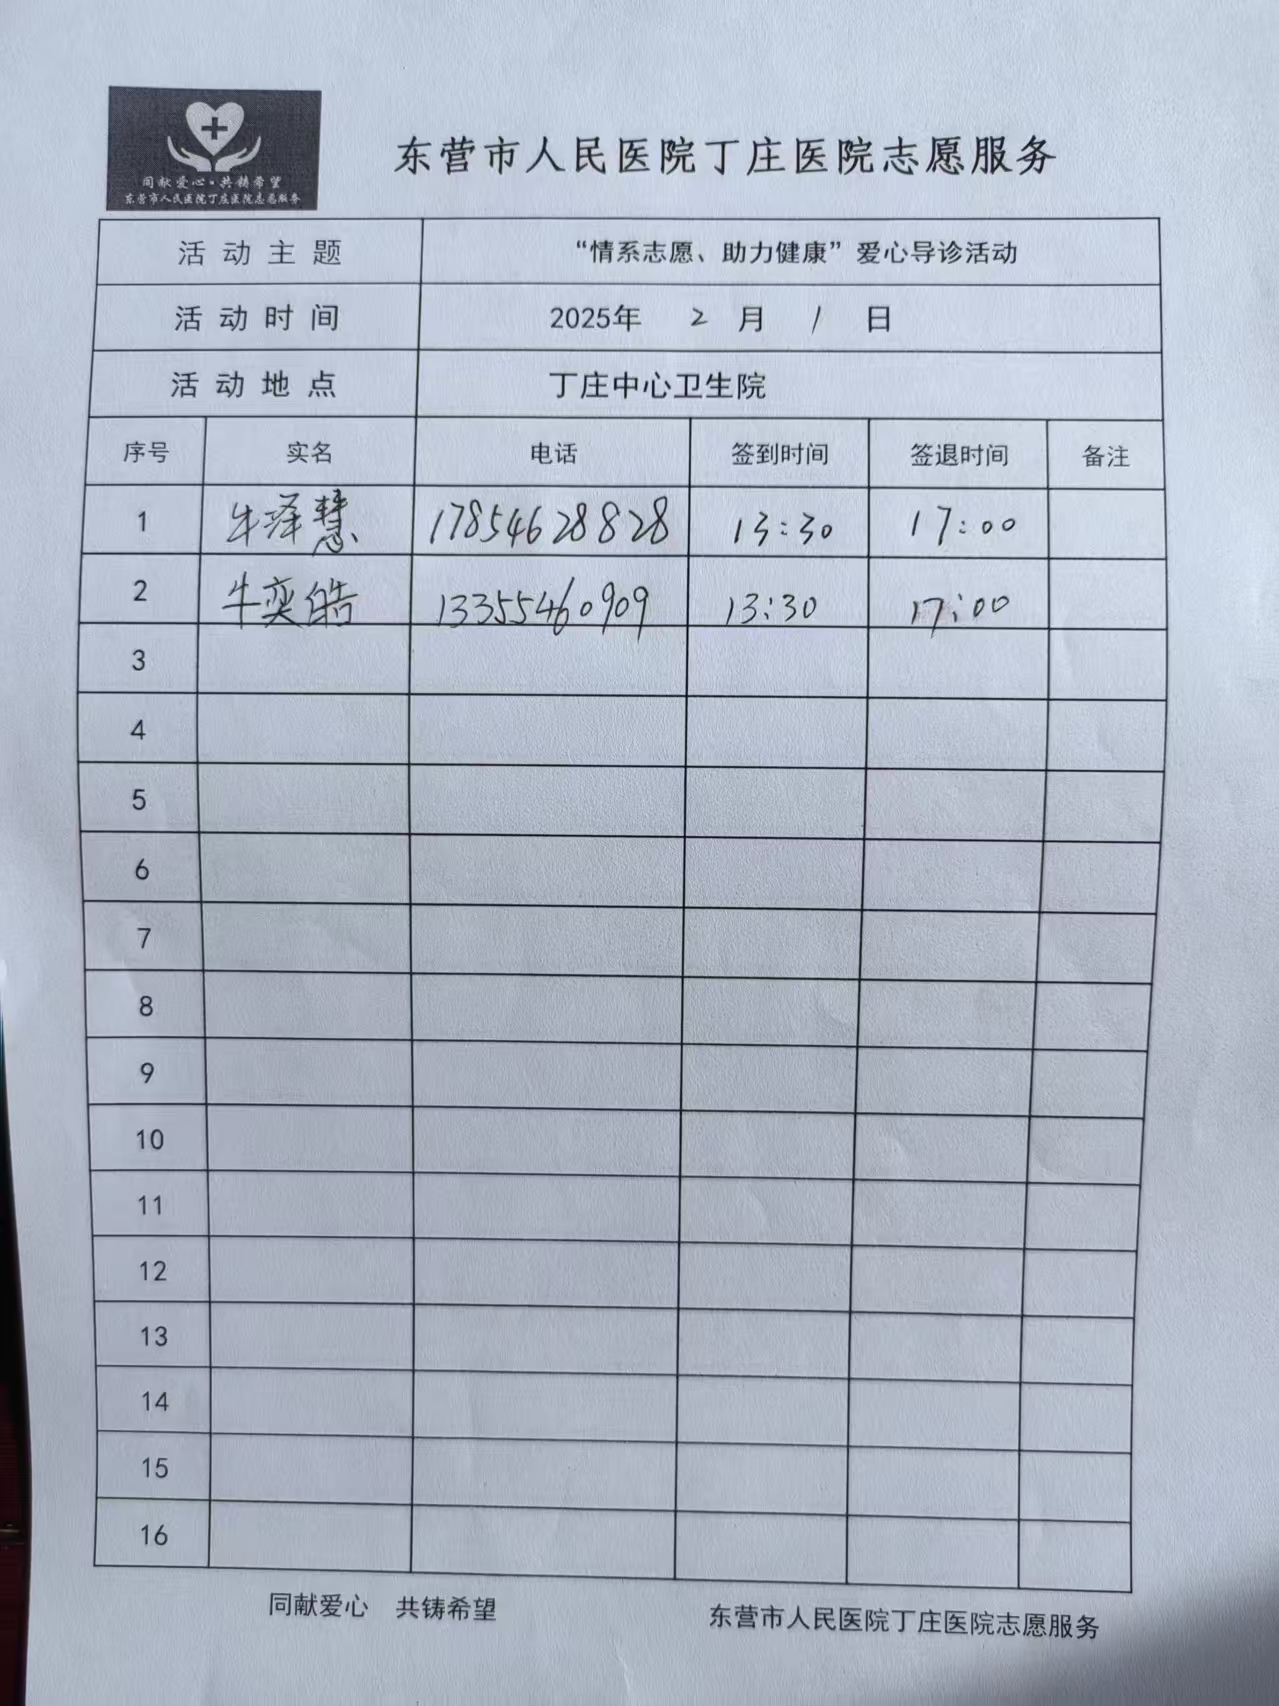 同献爱心·共铸希望
东营市人民医院丁庄医院志愿服务
东营市人民医院丁庄医院志愿服务
活动主题 “情系志愿、助力健康”爱心导诊活动
活动时间 2025年 2 月 1 日
活动地点 丁庄中心卫生院
序号 实名 电话 签到时间 签退时间 备注
1 牛泽慧 17854628828 13:30 17:00
2 牛奕皓 13355460909 13:30 17:00
3
4
5
6
7
8
9
10
11
12
13
14
15
16
同献爱心 共铸希望 东营市人民医院丁庄医院志愿服务